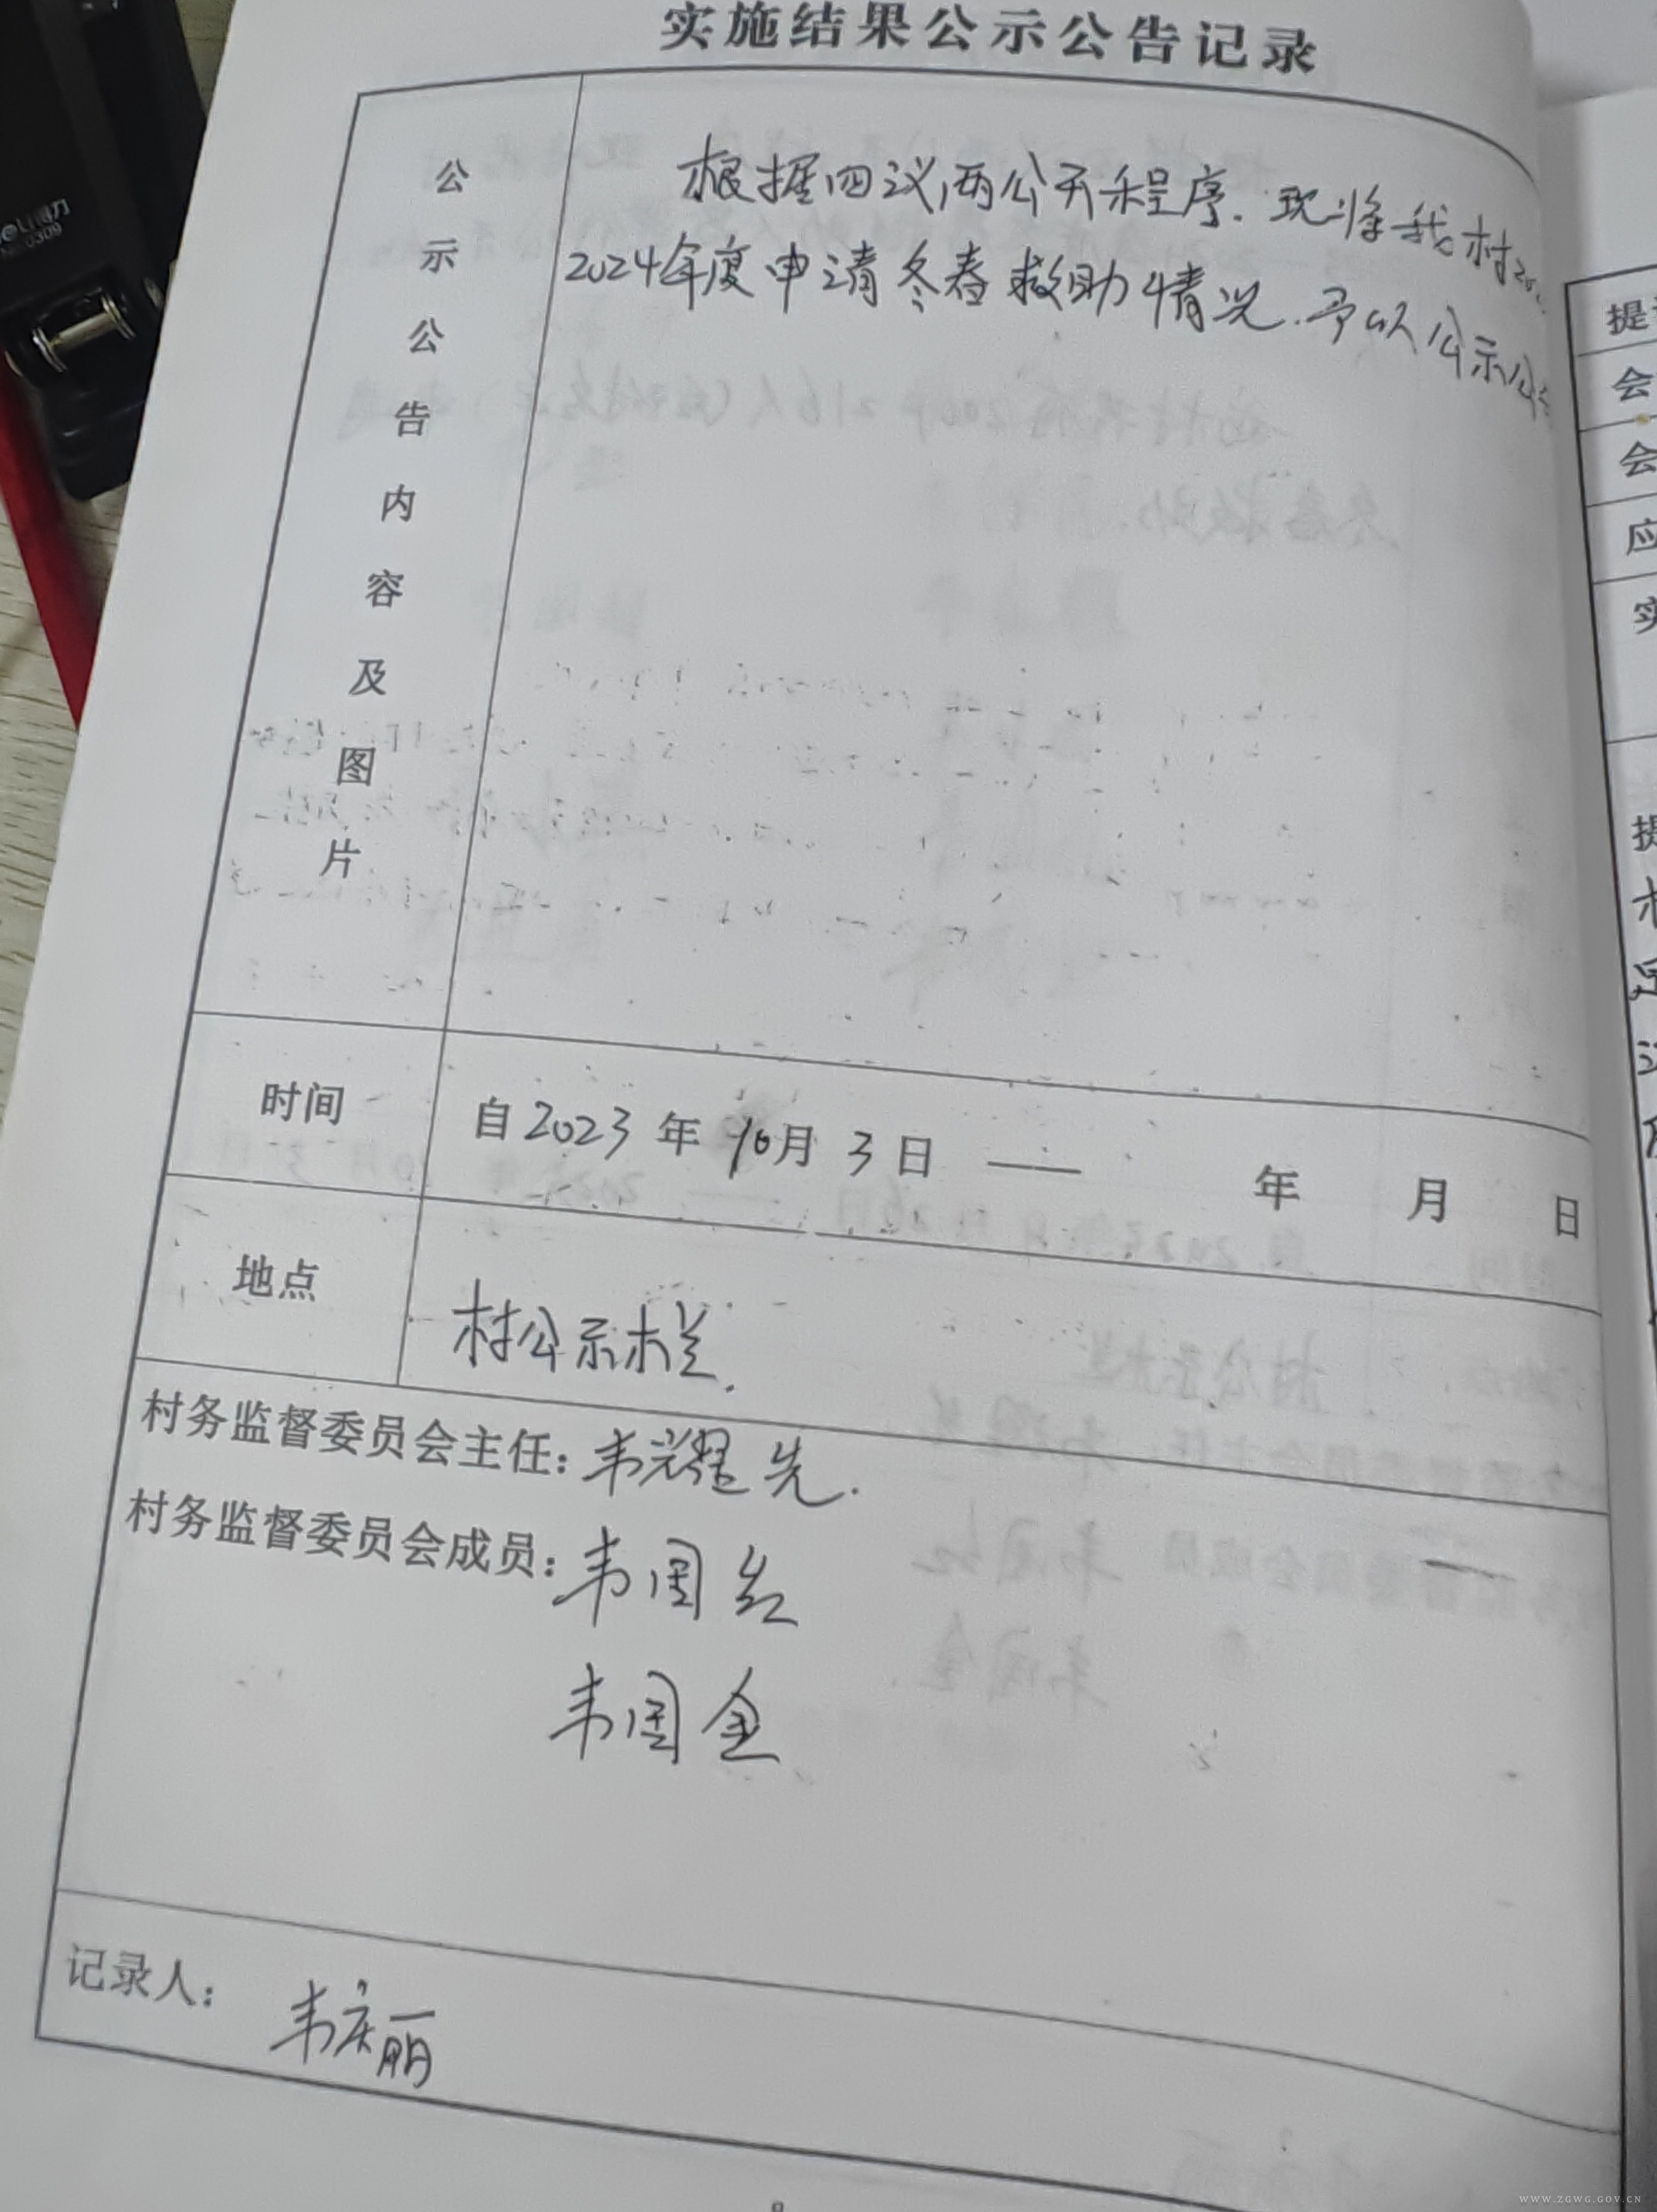 实施结果公示公告记录
公示公告内容及图片
根据四议两公开程序.现将我村
2024年度申请冬春救助情况.予以公示公
时间
自2023年10月3日——年月日
地点
村公示栏.
村务监督委员会主任:韦耀先.
村务监督委员会成员:韦国红
韦国金
记录人:韦庆丽
提
会
会
应
实
提
deli得力
0309
WWW.ZGWG.GOV.CN